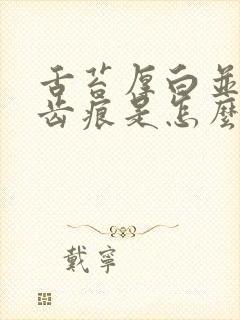 舌苔厚白並
齿痕是怎麼
戴寧